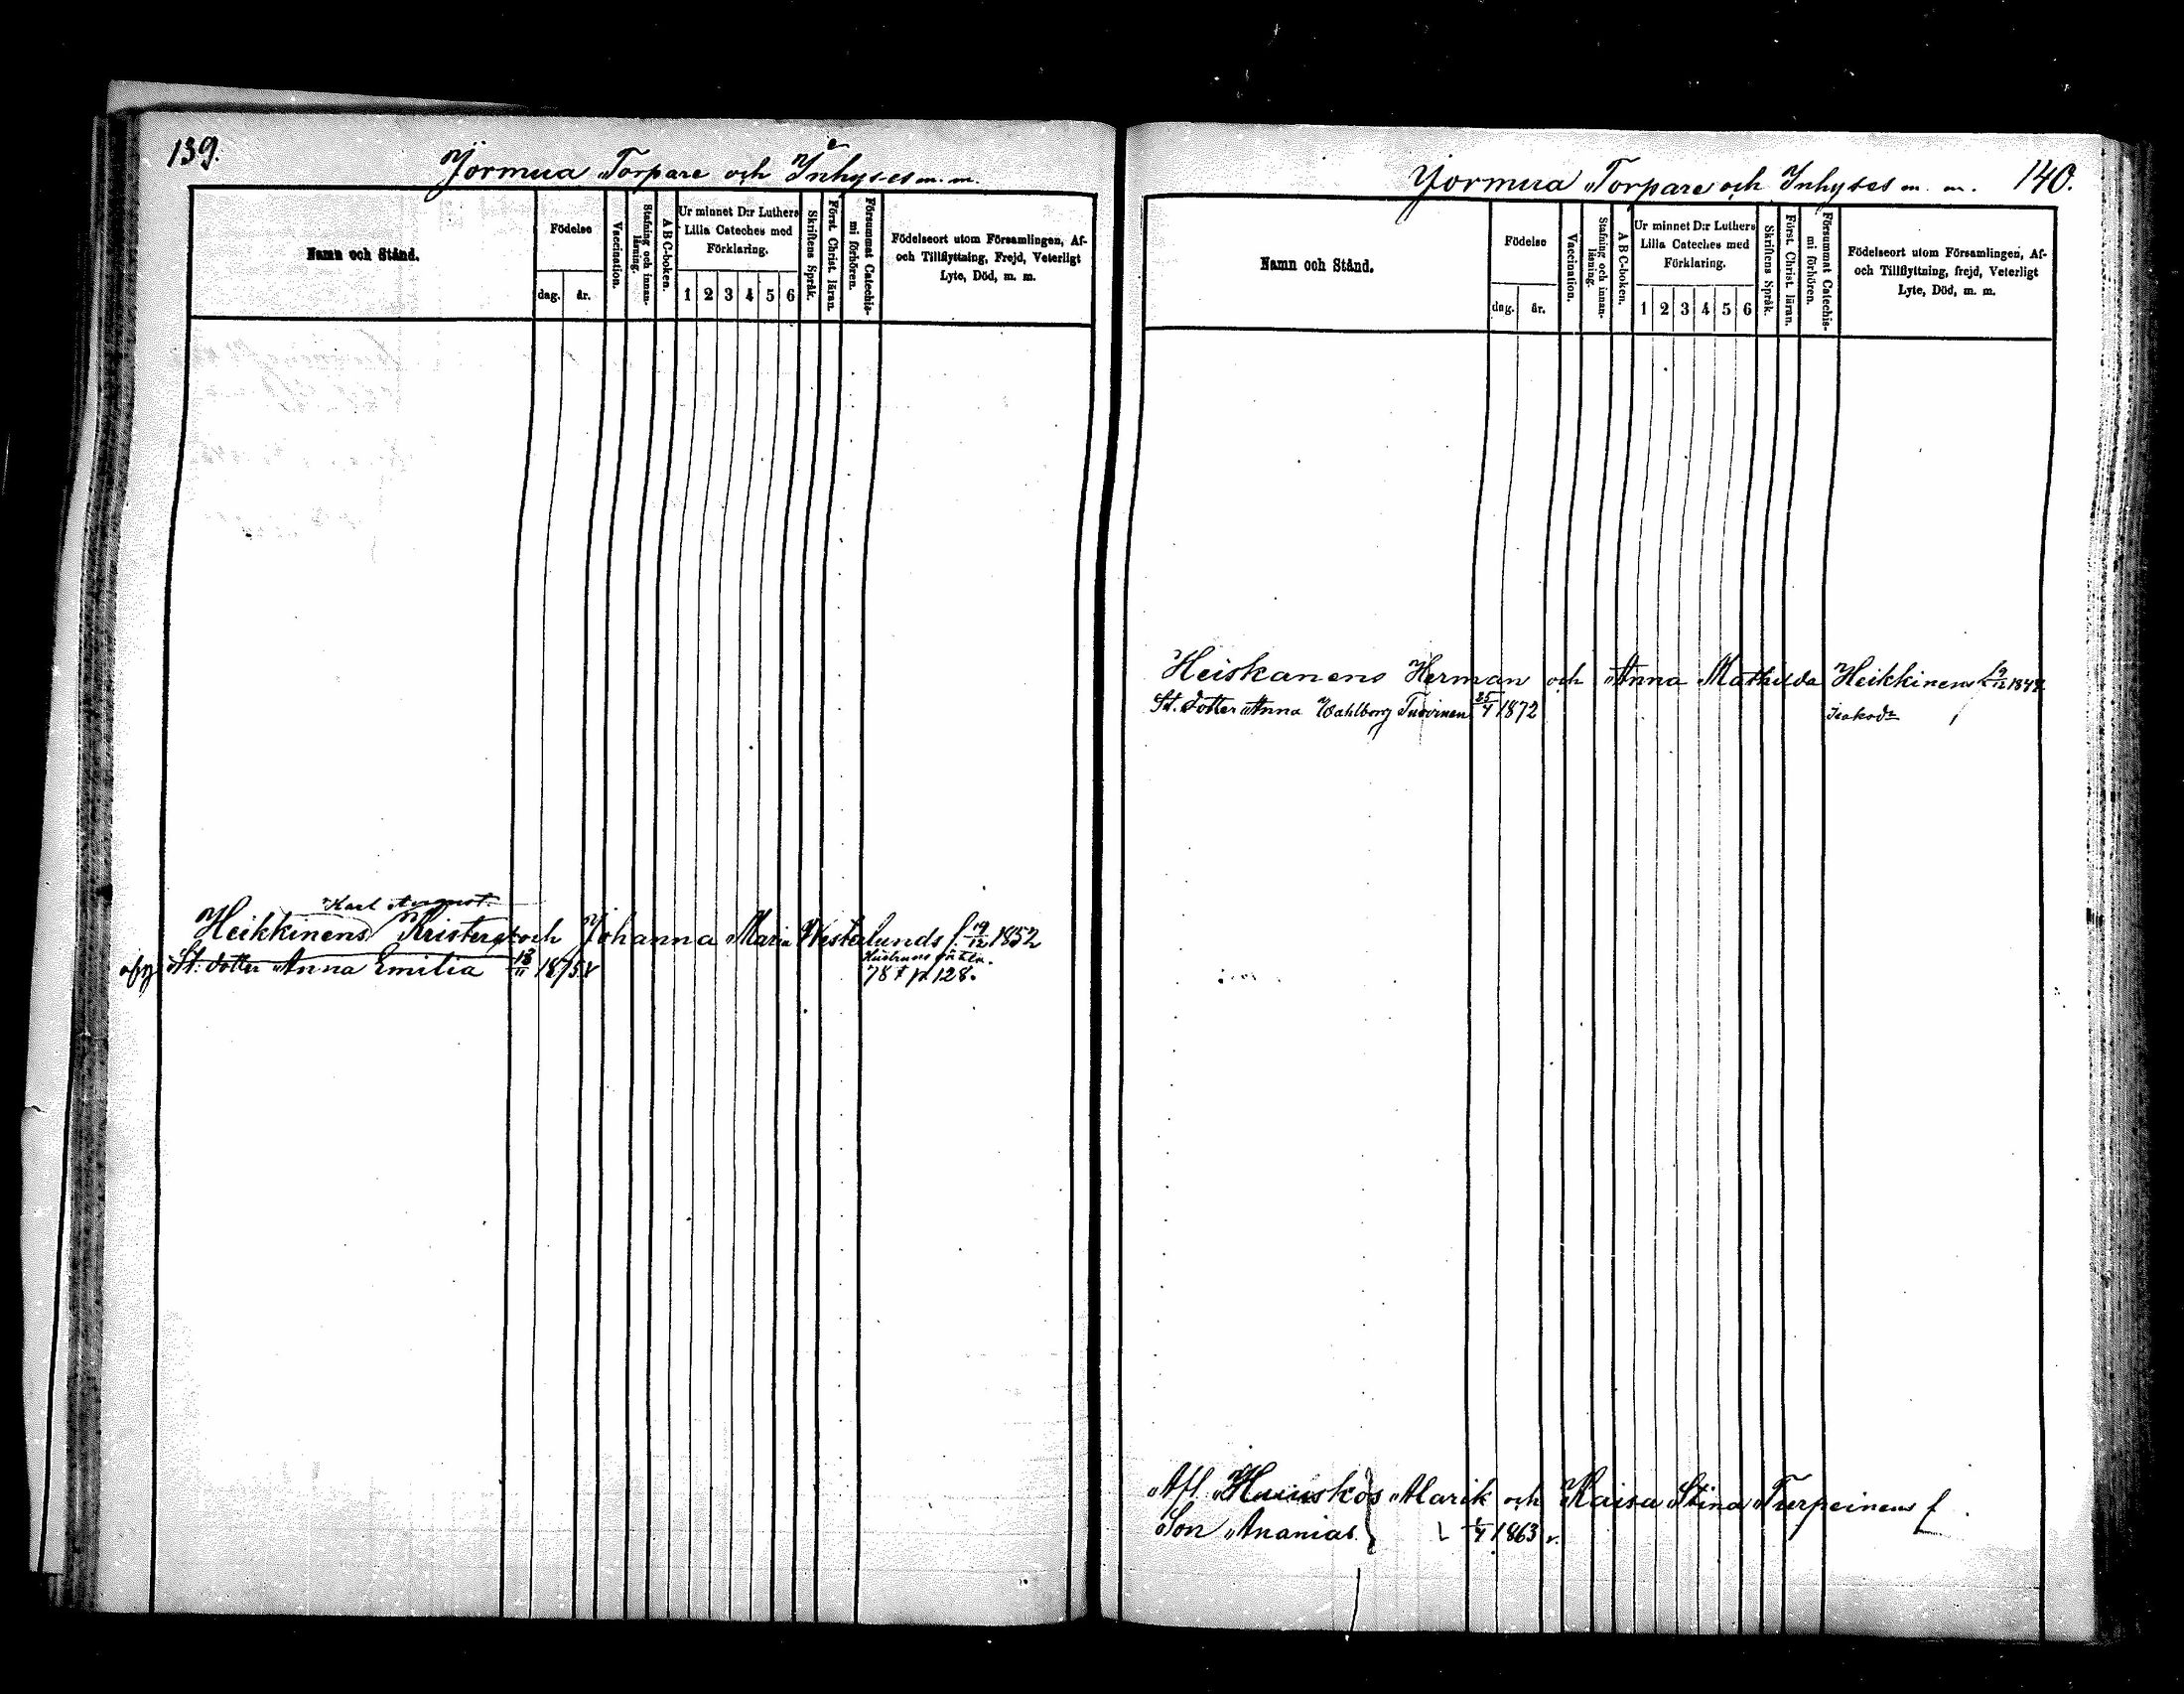 139.
Jormua Torpare och Inhyses m. m.
Namn och Stånd.
Födelse
dag.
år.
Vaccination.
Stafning och innan-
läsning.
A B C-boken.
Ur minnet D:r Luthers
Lilla Cateches med
Förklaring.
1 2 3 4 5 6
Skriftens Språk.
Först. Christ. läran.
Försummat Catechis-
mi förhören.
Födelseort utom Församlingen, Af-
och Tillflyttning, Frejd, Veterligt
Lyte, Död, m. m.
Karl August
Heikkinens Krister och Johanna Maria Westerlunds f. 19/12 1852
St. dotter Anna Emilia 18/11 1875 v
78 † p. 128.
Jormua Torpare och Inhyses m. m. 140.
Namn och Stånd.
Födelse
dag.
år.
Vaccination.
Stafning och innan-
läsning.
A B C-boken.
Ur minnet D:r Luthers
Lilla Cateches med
Förklaring.
1 2 3 4 5 6
Skriftens Språk.
Först. Christ. läran.
Försummat Catechis-
mi förhören.
Födelseort utom Församlingen, Af-
och Tillflyttning, frejd, Veterligt
Lyte, Död, m. m.
Heiskanens Herman och Anna Mathilda Heikkinens
St. dotter Anna Wahlborg Tuovinen 25/4 1872
Isaksdr
Afl. Huuskos Alarik och Kaisa Stina Turpeinens
Son Ananias 1/4 1863 v.